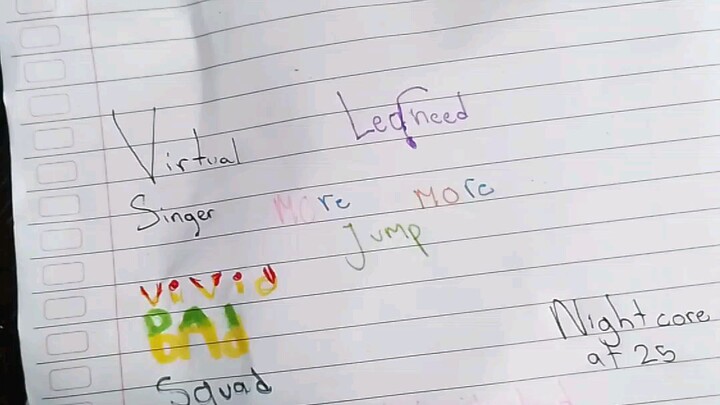 Virtual
Singer
Leo/need
MORe MORe
Jump
ViViD
BAD
Squad
Nightcore
at 25